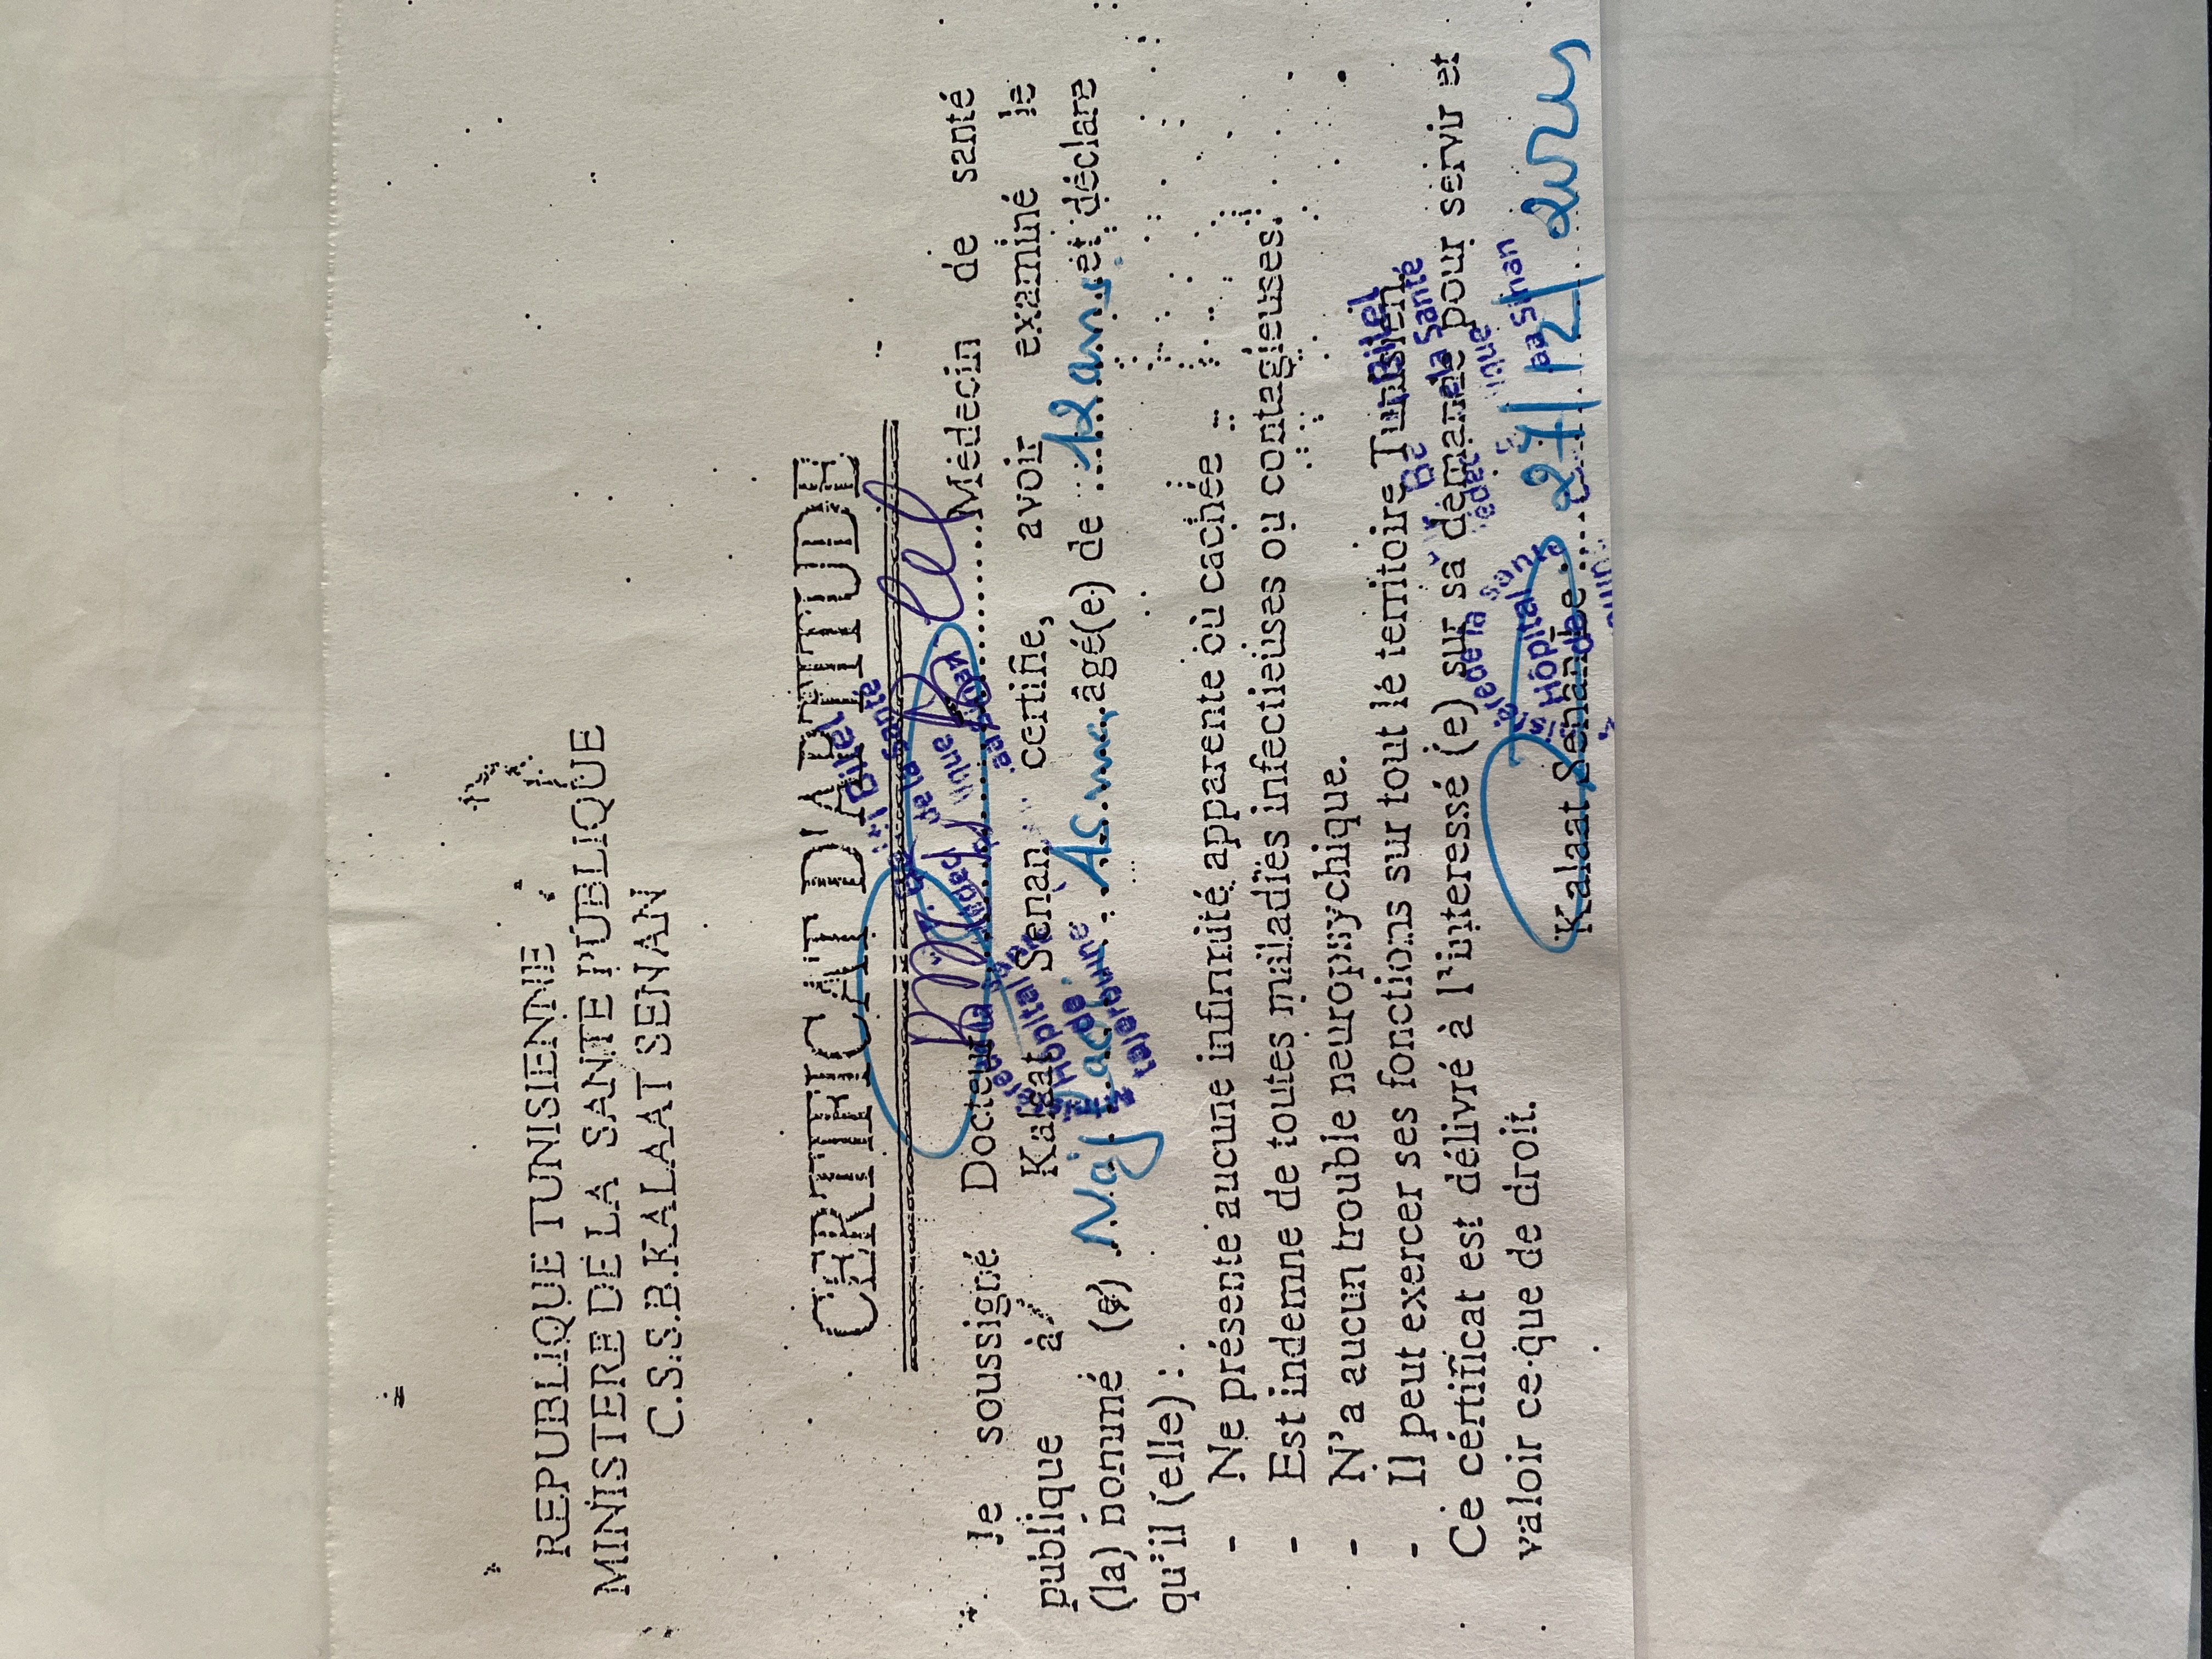 REPUBLIQUE TUNISIENNE
MINISTERE DE LA SANTE PUBLIQUE
C.S.S.B.KALAAT SENAN
CERTIFICAT D'APTITUDE
Je soussigné Docteur Médecin de santé
publique à Kalaat Senan certifie, avoir examiné le
(la) nommé (e) Asma âgé(e) de 12 ans et déclare
qu'il (elle) :
- Ne présente aucune infirmité apparente où cachée
- Est indemne de toutes maladies infectieuses ou contagieuses.
- N'a aucun trouble neuropsychique.
- Il peut exercer ses fonctions sur tout le territoire Tunisien.
Ce cértificat est délivré à l'interessé (e) sur sa demande pour servir et
valoir ce que de droit.
Kalaat Senan le 27/12/
Bilel
de la Santé
Hôpital